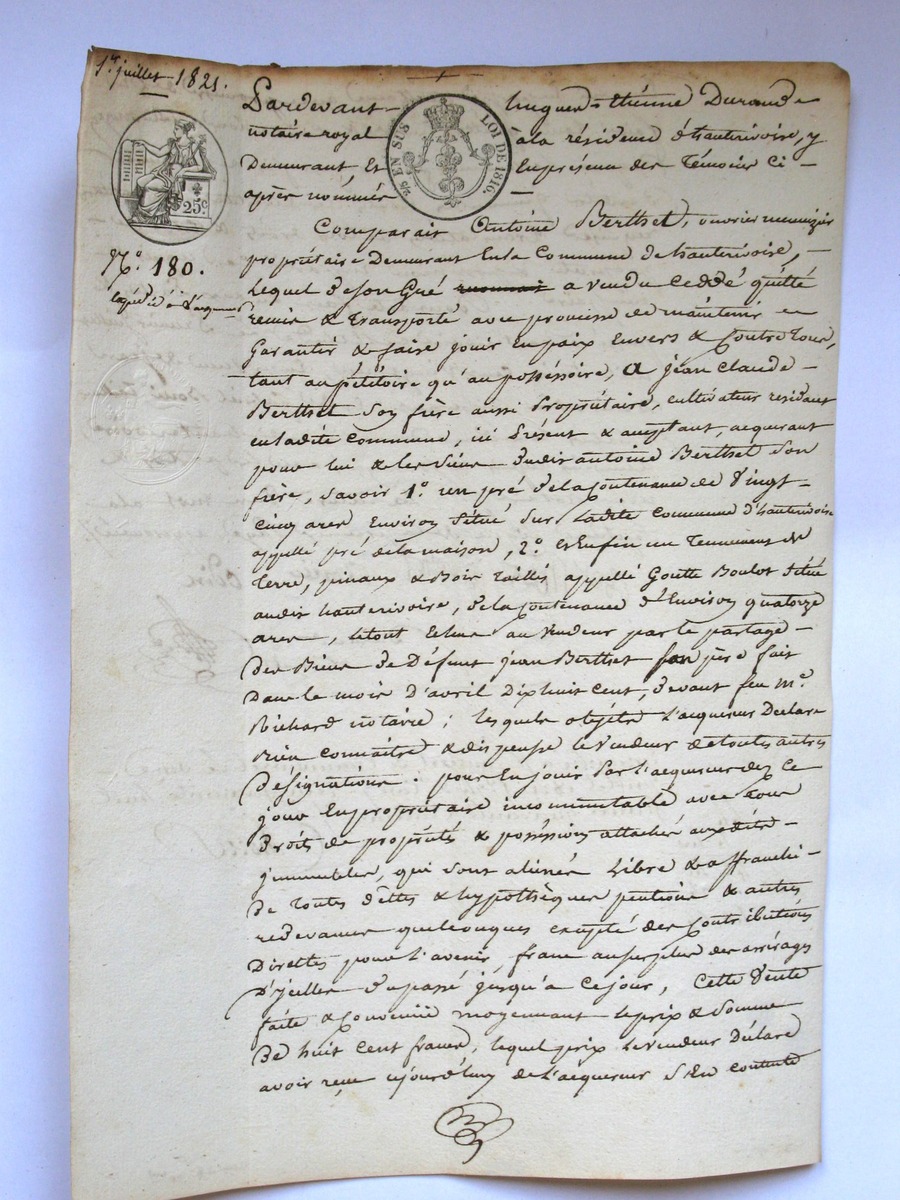 1er juillet 1821.
25c.
⅖ EN SUS LOI DE 1816.
No. 180.
Pardevant hugues-étiénne Durand
notaire royal à la résidence d'hauterivoire, y
Demeurant, Et En présence des Témoins Ci-
après nommés
Comparait Antoine Berthet, ouvrier menuizier
propriétaire Demeurant En la Commune de hauterivoire,
Lequel de son Gré a vendu Ceddé quitté
remis & transporté avec promesse de maintenir
Garantir & faire jouir En paix Envers & Contre tous,
tant au pétitoire qu'au posséssoire, a jean Claude
Berthet Son frère aussi Propriétaire, cultivateur residant
en ladite Commune, ici Présent & acceptant, acquerant
pour lui & les siens dudit antoine Berthet Son
frère, Savoir 1o. un pré de la Contenance de Vingt-
Cinq ares Environ Situé Sur Ladite Commune d'hauterivoire
appellé pré de la maison, 2o. Et Enfin un Tennement de
Terre, pinaux & Bois Taillis appellé Goutte Boulot Situé
audit hauterivoire, de la Contenance d'Environ quatorze
ares, Le tout Echu au Vendeur par le partage
Des Biens de Défunt jean Berthet Son père fait
Dans le mois D'avril Dix huit Cent, devant feu me.
Richard notaire; lesquels objets L'acquereur Déclare
bien Connaitre & dispense le Vendeur de toutes autres
Désignations. pour En jouir Par L'acquereur des Ce
jour En propriétaire incommutable avec tous
Droits de propriétés & posséssions attachés auxdits
jmmeubles, qui sont alienés Libre & affranchis
De Toutes dettes & hypothèques pentions & autres
redevances quelconques excepté des Contributions
Direttes pour L'avenir, franc au surplus des arrérages
D'jcelles du passé jusqu'à Ce jour, Cette Vente
faite & Convenüe moyennant le prix & Somme
De huit Cent francs, lequel prix Le Vendeur Déclare
avoir reçu cejourd'huy de L'acquereur S'En Contente